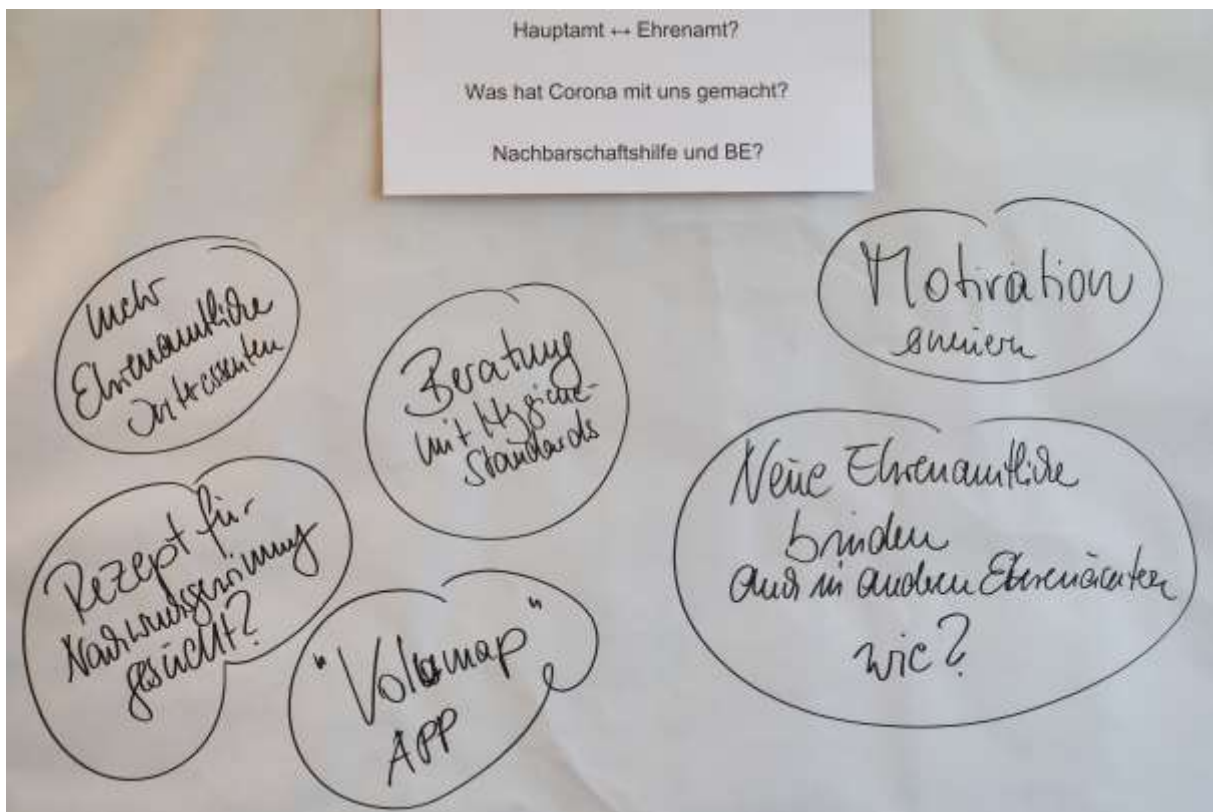 Hauptamt ↔ Ehrenamt?
Was hat Corona mit uns gemacht?
Nachbarschaftshilfe und BE?
mehr
Ehrenamtliche
Interessenten
Beratung
mit Hygiene-
Standards
Motivation
Rezept für
Nachwuchsgewinnung
gesucht?
"Volumap"
APP
Neue Ehrenamtliche
binden
auch in anderen Ehrenämtern
wie?